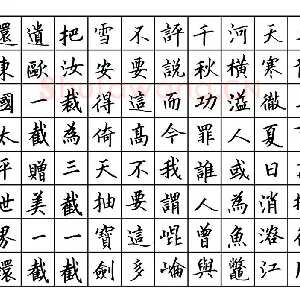 天寒徹夏日消溶江
河橫溢人或為魚鱉
千秋功罪誰人曾與
評說而今我謂崑崙
不要這高不要這多
雪安得倚天抽寶劍
把汝截為三截一截
遺歐一截贈美一截
還東國太平世界還